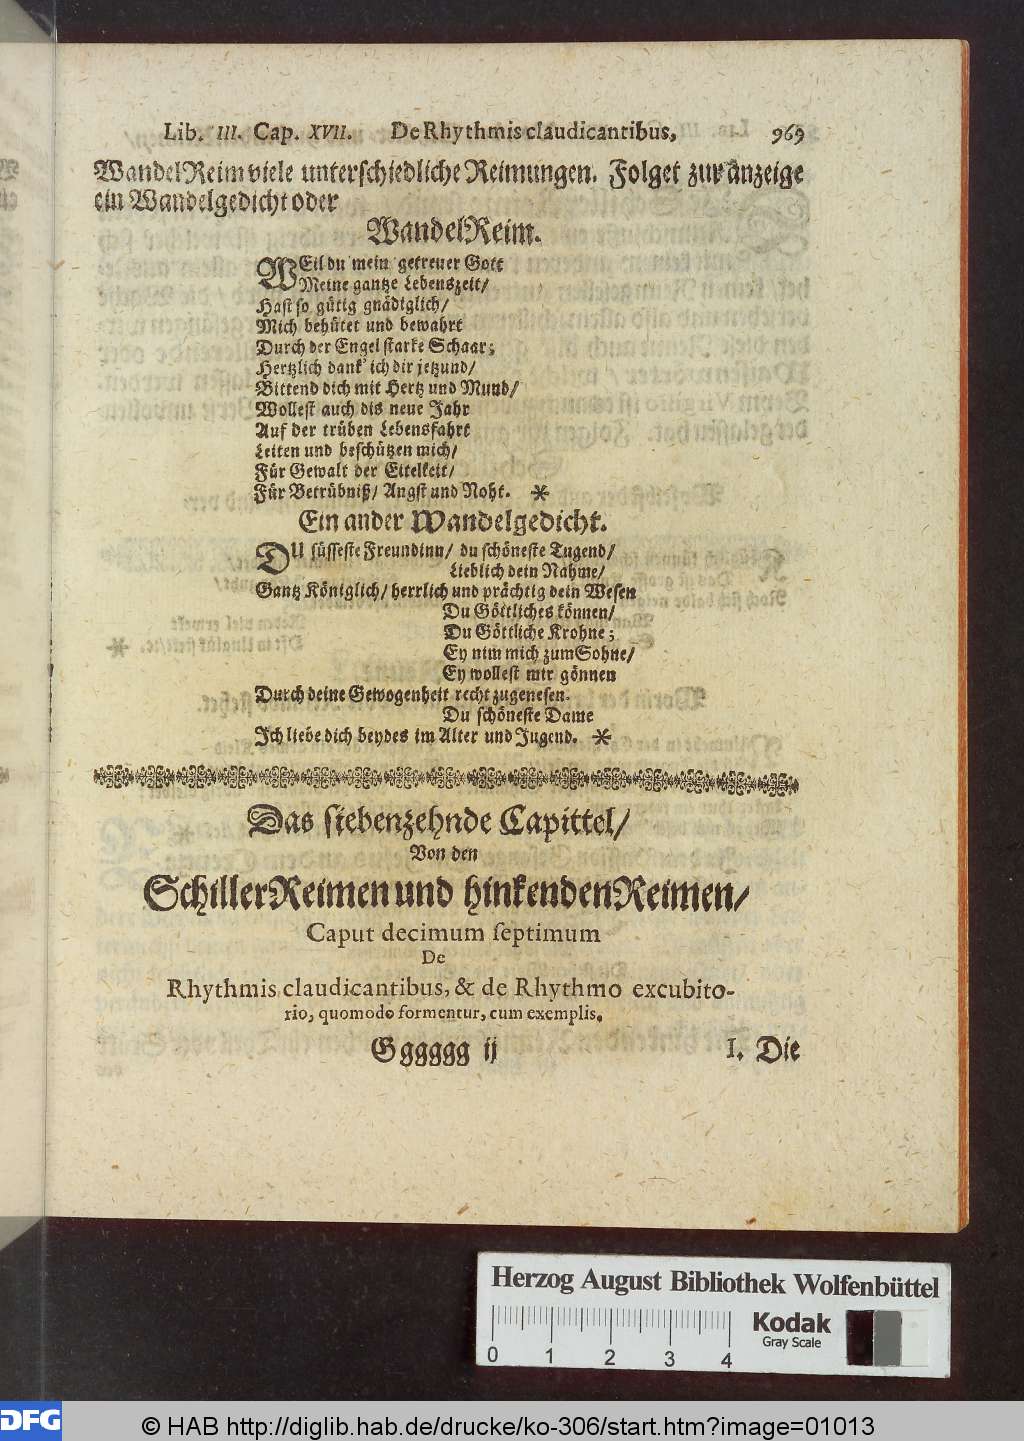 Lib. III. Cap. XVII. De Rhythmis claudicantibus, 969
WandelReim viele unterschiedliche Reimungen. Folget zur anzeige
ein Wandelgedicht oder
WandelReim.
WEil du mein getreuer Gott
Meine gantze Lebenszeit/
Hast so gütig gnädiglich/
Mich behütet und bewahrt
Durch der Engel starke Schaar;
Hertzlich dank' ich dir jetzund/
Bittend dich mit Hertz und Mund/
Wollest auch dis neue Jahr
Auf der trüben Lebensfahrt
Leiten und beschützen mich/
Für Gewalt der Eitelkeit/
Für Betrübniß/ Angst und Noht. *
Ein ander Wandelgedicht.
DU süsseste Freundinn/ du schöneste Tugend/
Lieblich dein Nahme/
Gantz Königlich/ herrlich und prächtig dein Wesen
Du Göttliches können/
Du Göttliche Krohne;
Ey nim mich zum Sohne/
Ey wollest mir gönnen
Durch deine Gewogenheit recht zugenesen.
Du schöneste Dame
Ich liebe dich beydes im Alter und Jugend. *
Das siebenzehnde Capittel/
Von den
SchillerReimen und hinkendenReimen/
Caput decimum septimum
De
Rhythmis claudicantibus, & de Rhythmo excubito-
rio, quomodo formentur, cum exemplis.
Gggggg ij I. Die
Herzog August Bibliothek Wolfenbüttel
Kodak
Gray Scale
0 1 2 3 4
DFG
© HAB http://diglib.hab.de/drucke/ko-306/start.htm?image=01013